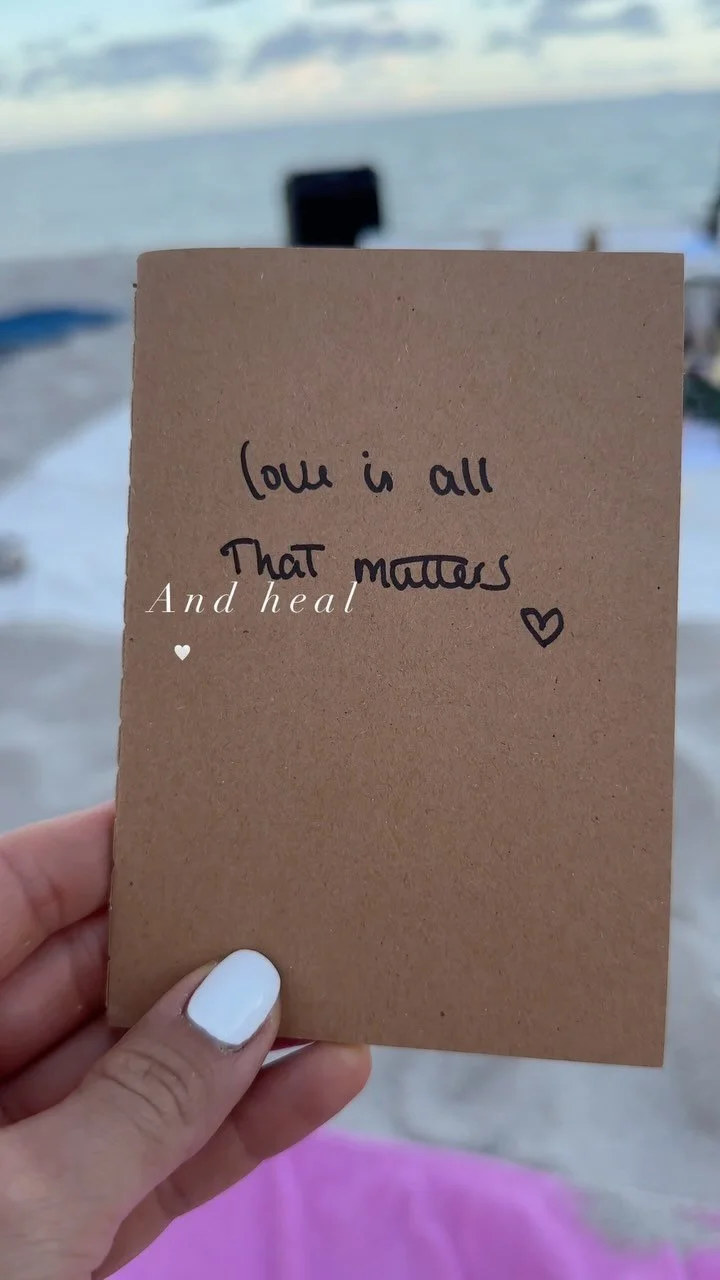 love is all
That matters
And heal